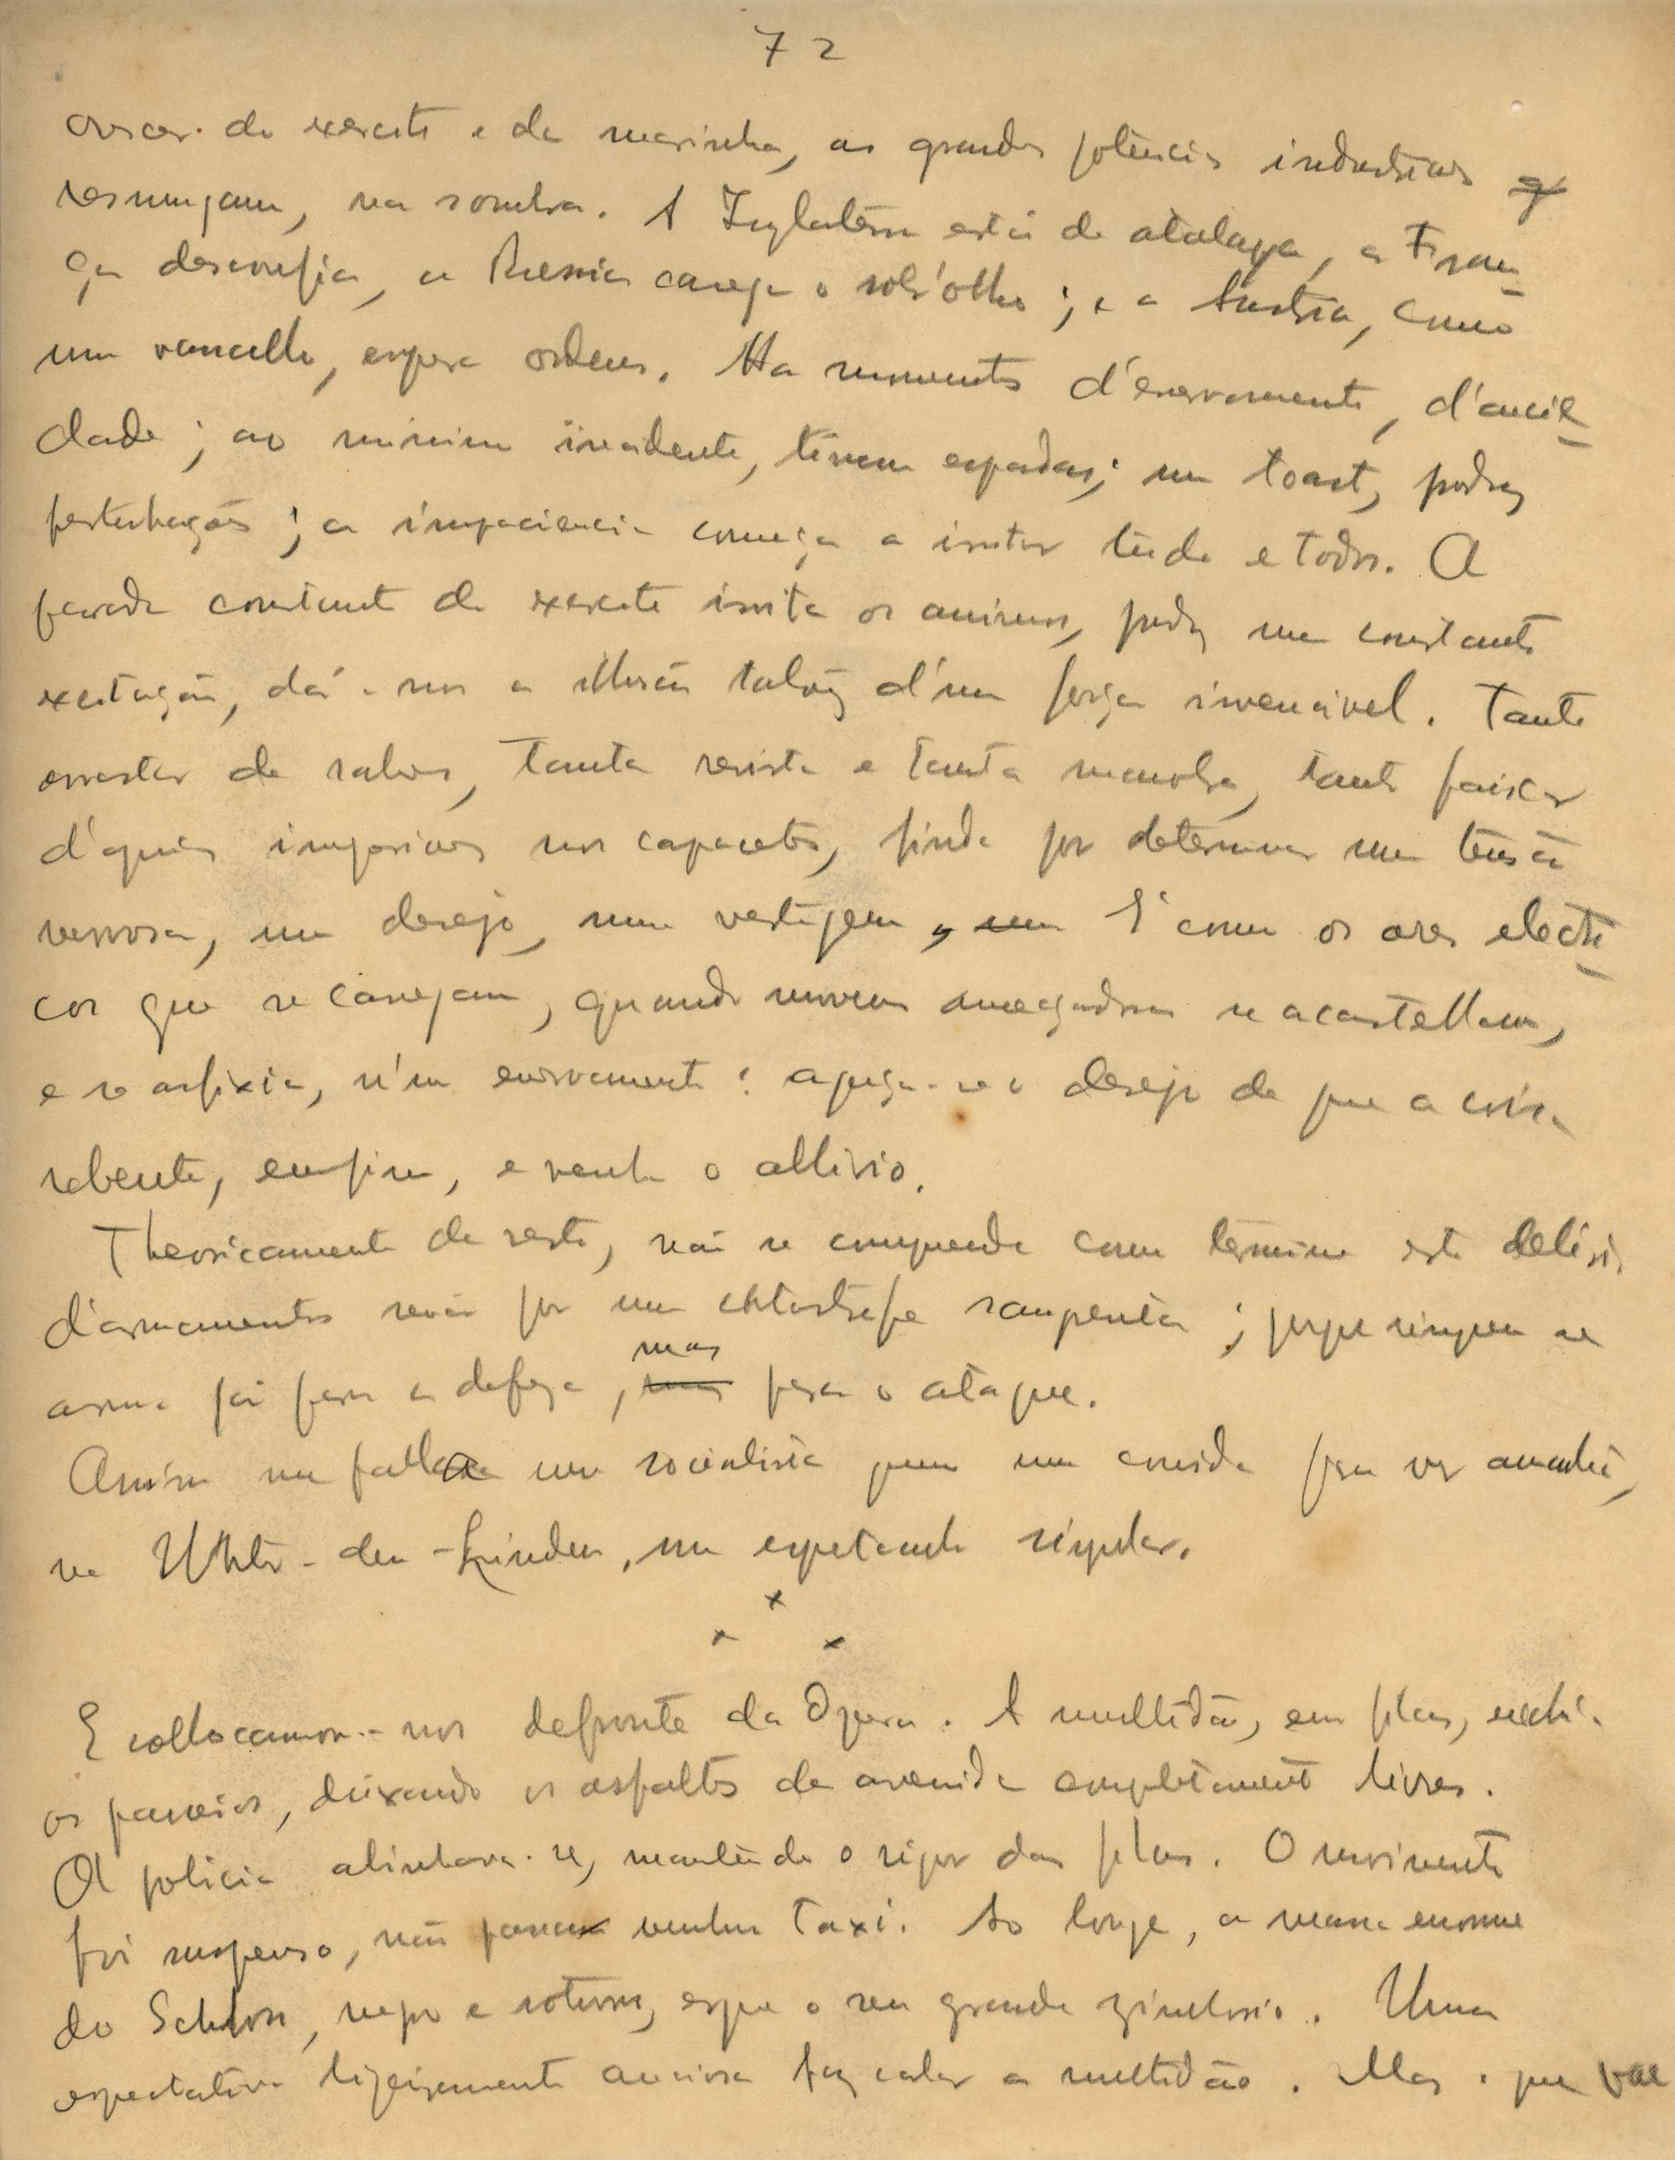 72
crescer do exercito e da marinha, as grandes potencias industriaes
resmungam, na sombra. A Inglaterra está de atalaya, a Fran-
ça desconfia, a Russia carrega o sobr'olho; e a Austria, como
um vassallo, espera ordens. Ha momentos d'enervamento, d'ancie-
dade; ao minimo incidente, tinem espadas; um toast, produz
perturbações; a impaciencia começa a irritar tudo e todos. A
parada constante do exercito irrita os animos, produz uma constante
excitação, dá-nos a illusão talvez d'uma força invencivel. Tanto
arrastar de sabres, tanta revista e tanta manobra, tanto faiscar
d'aguias imperiaes nos capacetes, finda por determinar uma tensão
nervosa, um desejo, uma vertigem. É como os ares electri-
cos que se carregam, quando nuvens ameaçadoras se acastellam,
e se asfixia, n'um enervamento: apossa-se o desejo de que a coisa
rebente, emfim, e venha o allivio.
Theoricamente de resto, não se comprehende como termine este delirio
d'armamentos senão por uma chtastrofe sangrenta; porque ninguem se
arma já para a defeza, mas para o ataque.
Assim me falla um socialista que me convida para ver amanhã,
na Unter-den-Linden, um espetaculo singular.
x
x x
E collocamo-nos defronte da Opera. A multidão, em filas, enchia
os passeios, deixando os asfaltos da avenida completamente livres.
A policia alinhava-se, mantendo o rigor das filas. O movimento
foi suspenso, não passa nenhum taxi. Ao longe, a massa enorme
do Schloss, negro e soturno, ergue o seu grande zimborio. Uma
espectativa ligeiramente anciosa faz calar a multidão. Mas o que vae